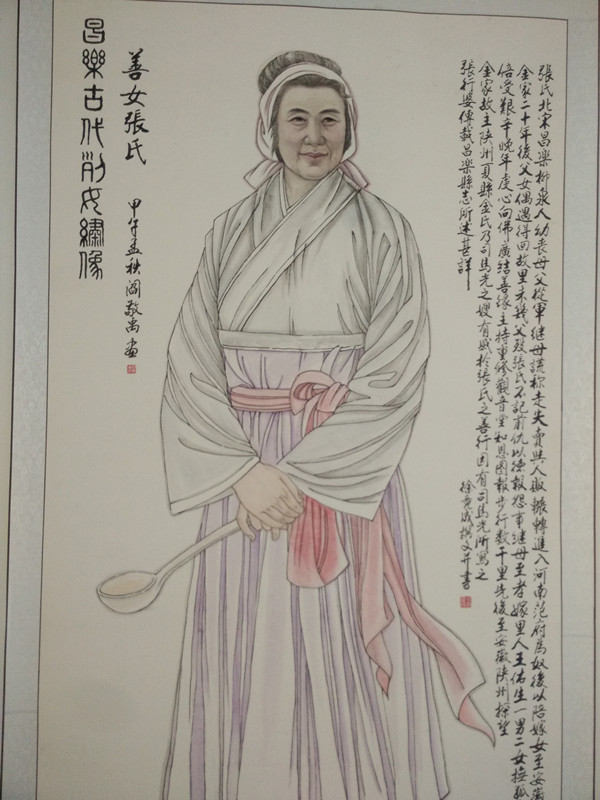 張氏北宋昌樂柳泉人幼喪母父從軍繼母謊称走失賣與人販輾轉進入河南范府為奴後以陪嫁女至安徽
金家二十年後父女偶遇得回故里未幾父殁張氏不記前仇以德報怨事繼母至孝嫁里人王佑生一男二女撫孤
倍受艱辛晚年虔心向佛廣結善緣主持重修觀音堂知恩圖報步行数千里先後至安徽陝州探望
金家故主陝州夏縣金氏乃司馬光之嫂有感於張氏之善行因有司馬光所寫之
張行婆傳載昌樂縣志所述甚詳
徐撰文并書
善女張氏
甲午孟秋閻敬禹畫
昌樂古代列女繡像